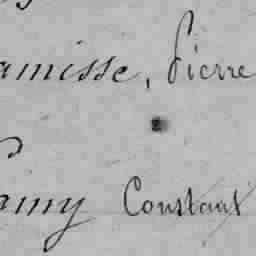 amisse, Pierre
amy Constant